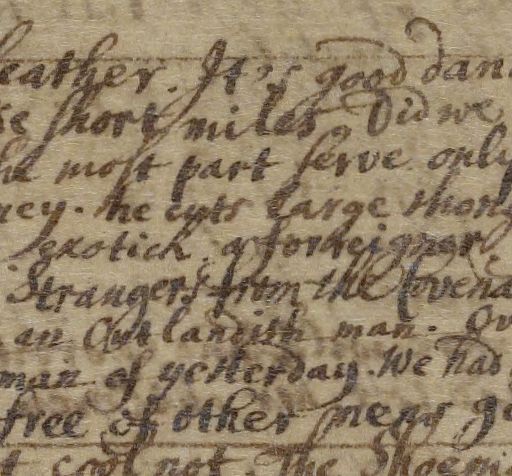 leather. It's good dan
ke short miles Did we
he most part serve only
ney. he cuts large thong
exotick a forreigner.
Strangers from the Covena
an Outlandish man. Ov
man of yesterday. We had
free of other mens go
cool not. The